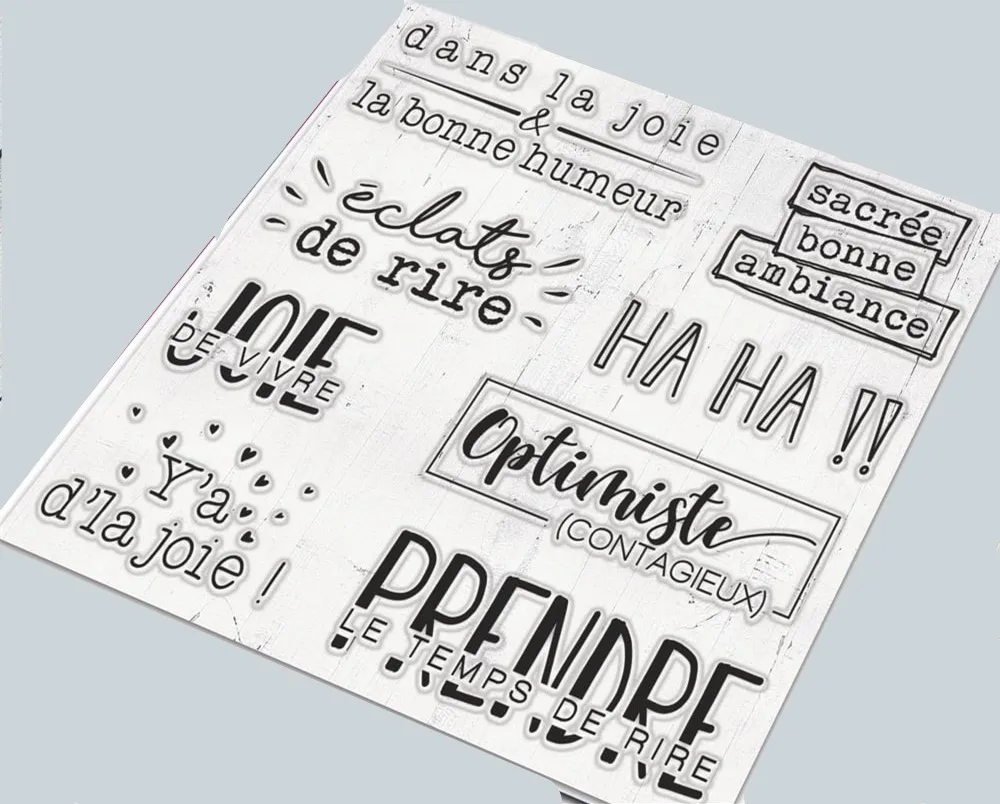 dans la joie
&
la bonne humeur
éclats
de rire
sacrée
bonne
ambiance
JOIE
DE VIVRE
HA HA !!
Optimiste
(CONTAGIEUX)
Y'a
d'la joie !
PRENDRE
LE TEMPS DE RIRE